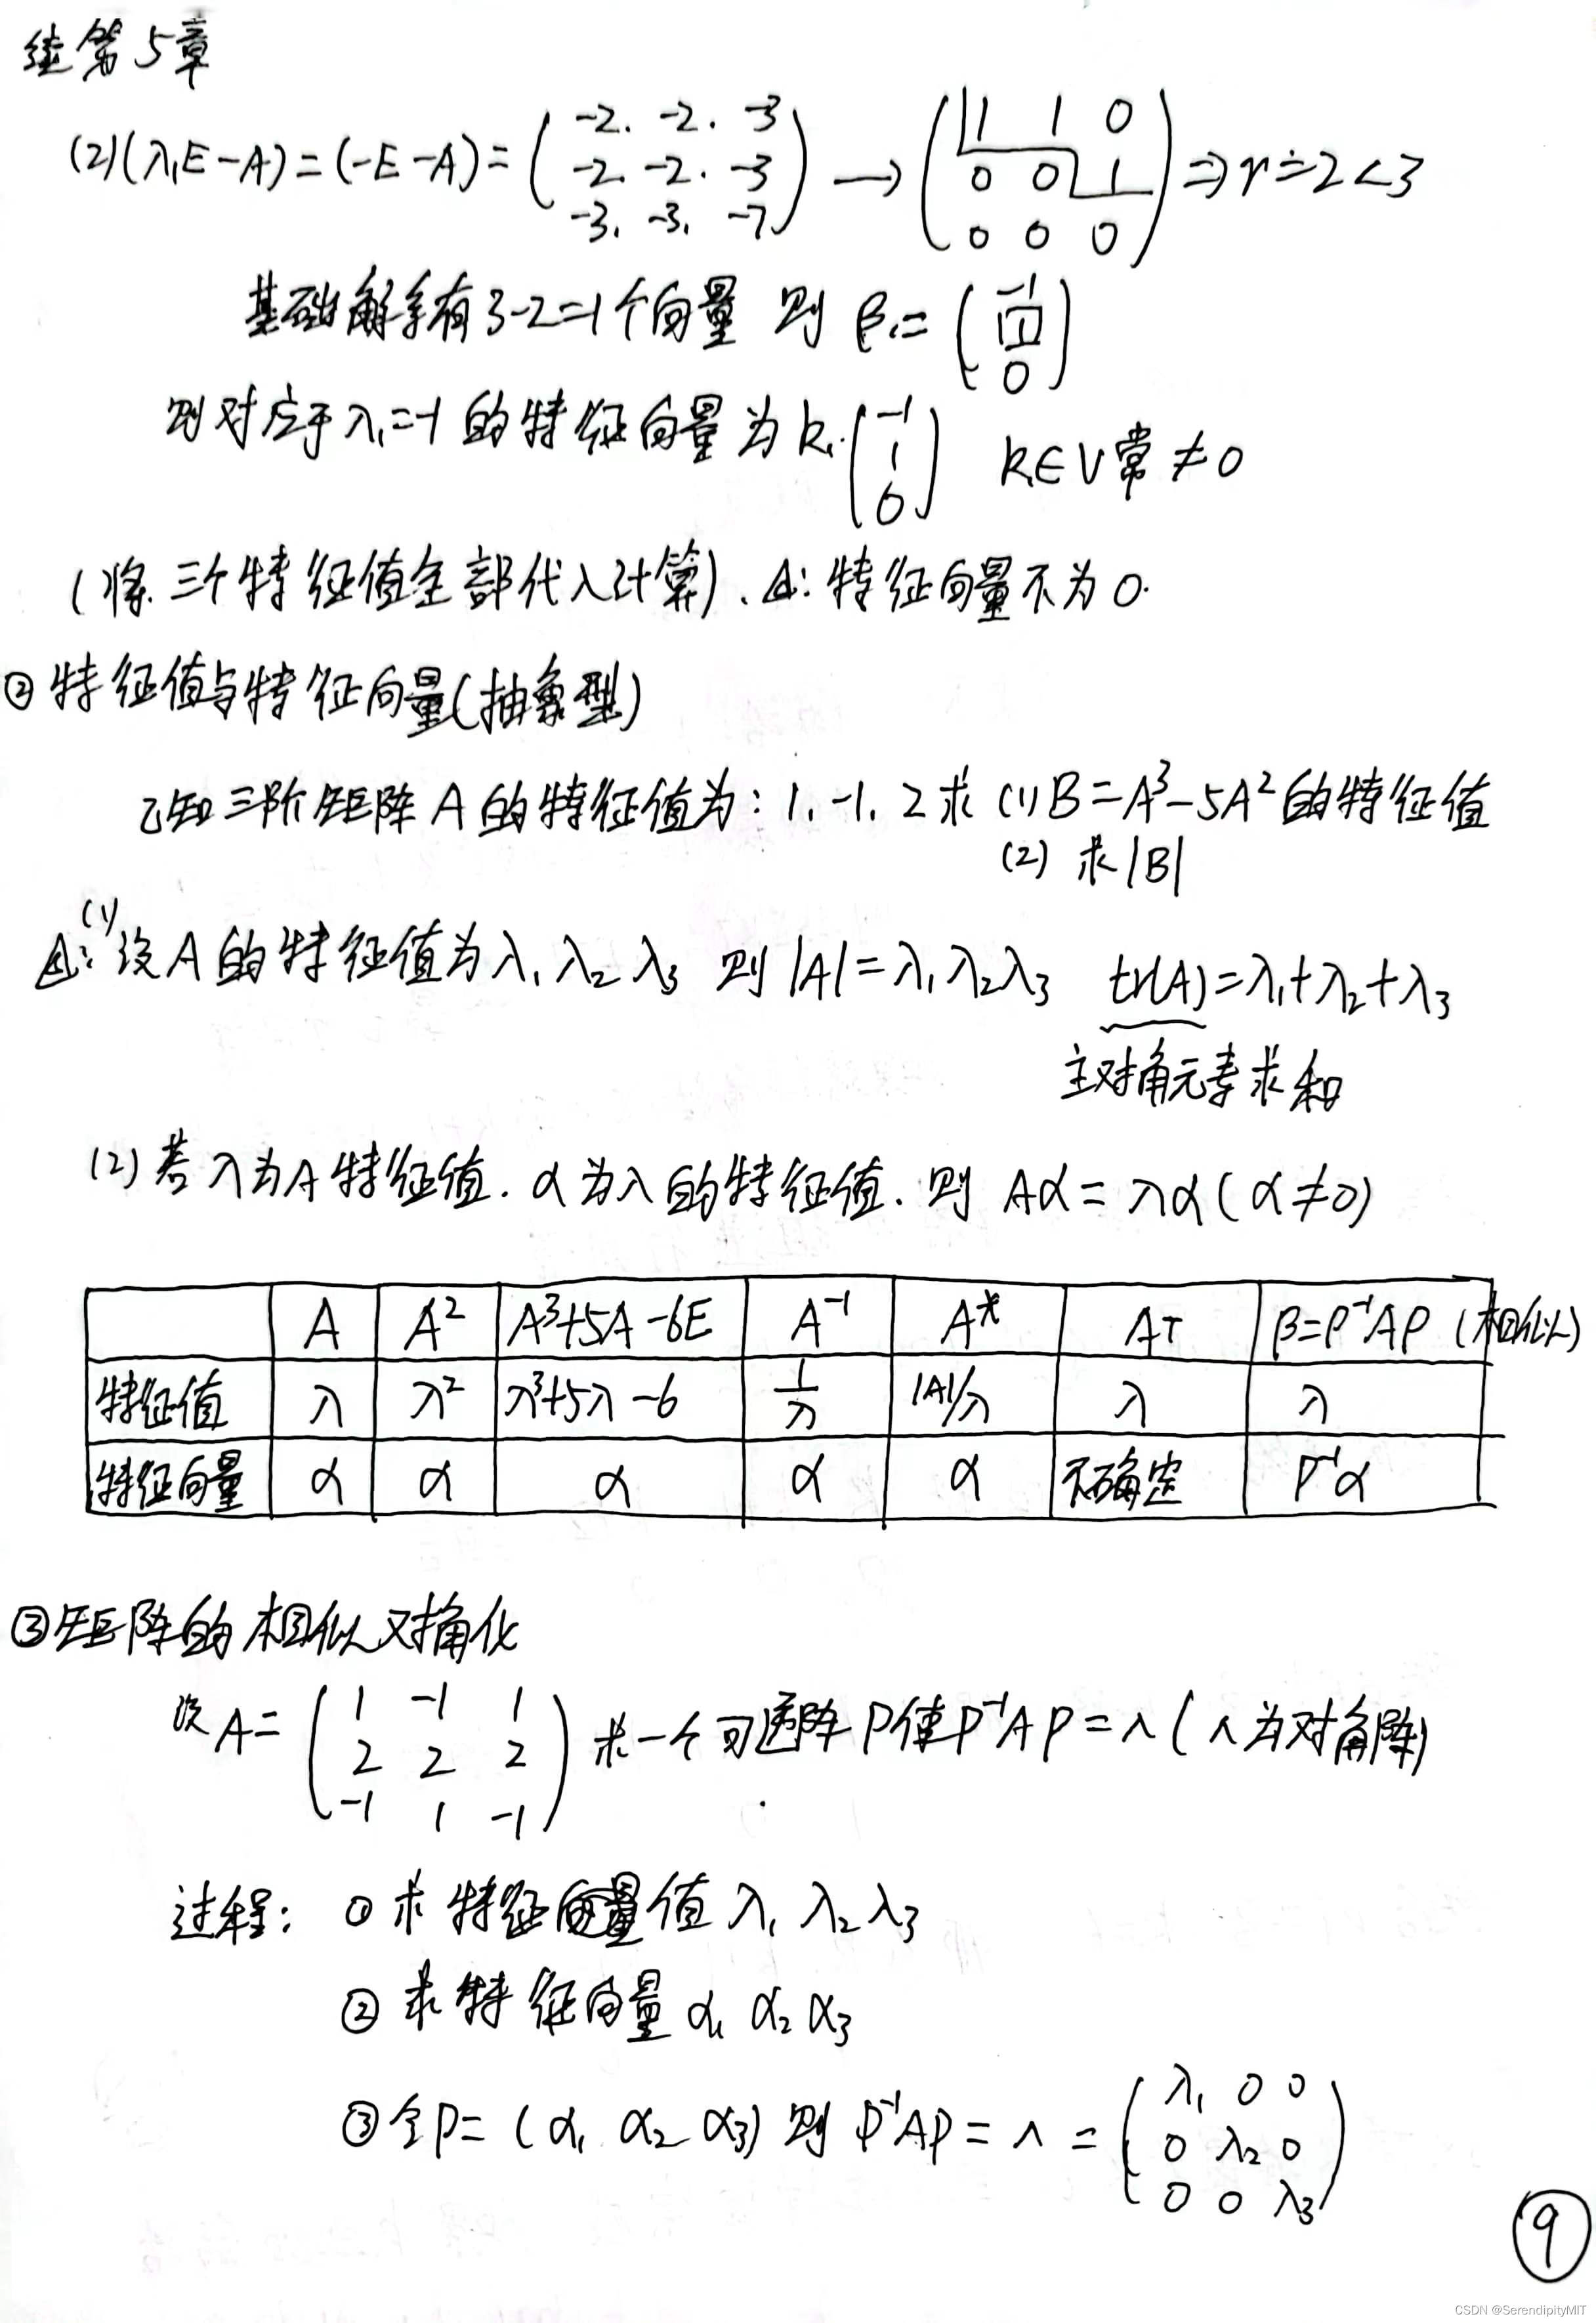 续第5章
(2)(λ₁E-A)=(-E-A)=(-2. -2. -3 / -2. -2. -3 / -3. -3. -7)→(1 1 0 / 0 0 1 / 0 0 0)⇒r=2<3
基础解系有3-2=1个向量 则 β₁=(-1 / 1 / 0)
则对应于λ₁=-1的特征向量为k₁·(-1 / 1 / 0) k₁∈V常≠0
(将三个特征值全部代入计算). 注: 特征向量不为0.
② 特征值与特征向量(抽象型)
已知三阶矩阵A的特征值为: 1. -1. 2 求 (1)B=A³-5A²的特征值
(2) 求|B|
注: (1) 设A的特征值为λ₁ λ₂ λ₃ 则|A|=λ₁λ₂λ₃ tr(A)=λ₁+λ₂+λ₃
主对角元素求和
(2) 若λ为A特征值. α为λ的特征值. 则 Aα=λα(α≠0)
A A² A³+5A-6E A⁻¹ A* Aᵀ B=P⁻¹AP (相似)
特征值 λ λ² λ³+5λ-6 1/λ |A|/λ λ λ
特征向量 α α α α α 不确定 P⁻¹α
③矩阵的相似对角化
设A=(1 -1 1 / 2 2 2 / -1 1 -1) 求一个可逆阵P使P⁻¹AP=Λ(Λ为对角阵)
过程: ① 求特征值 λ₁ λ₂ λ₃
② 求特征向量 α₁ α₂ α₃
③ 令P=(α₁ α₂ α₃) 则 P⁻¹AP=Λ=(λ₁ 0 0 / 0 λ₂ 0 / 0 0 λ₃)
9
CSDN @SerendipityMIT